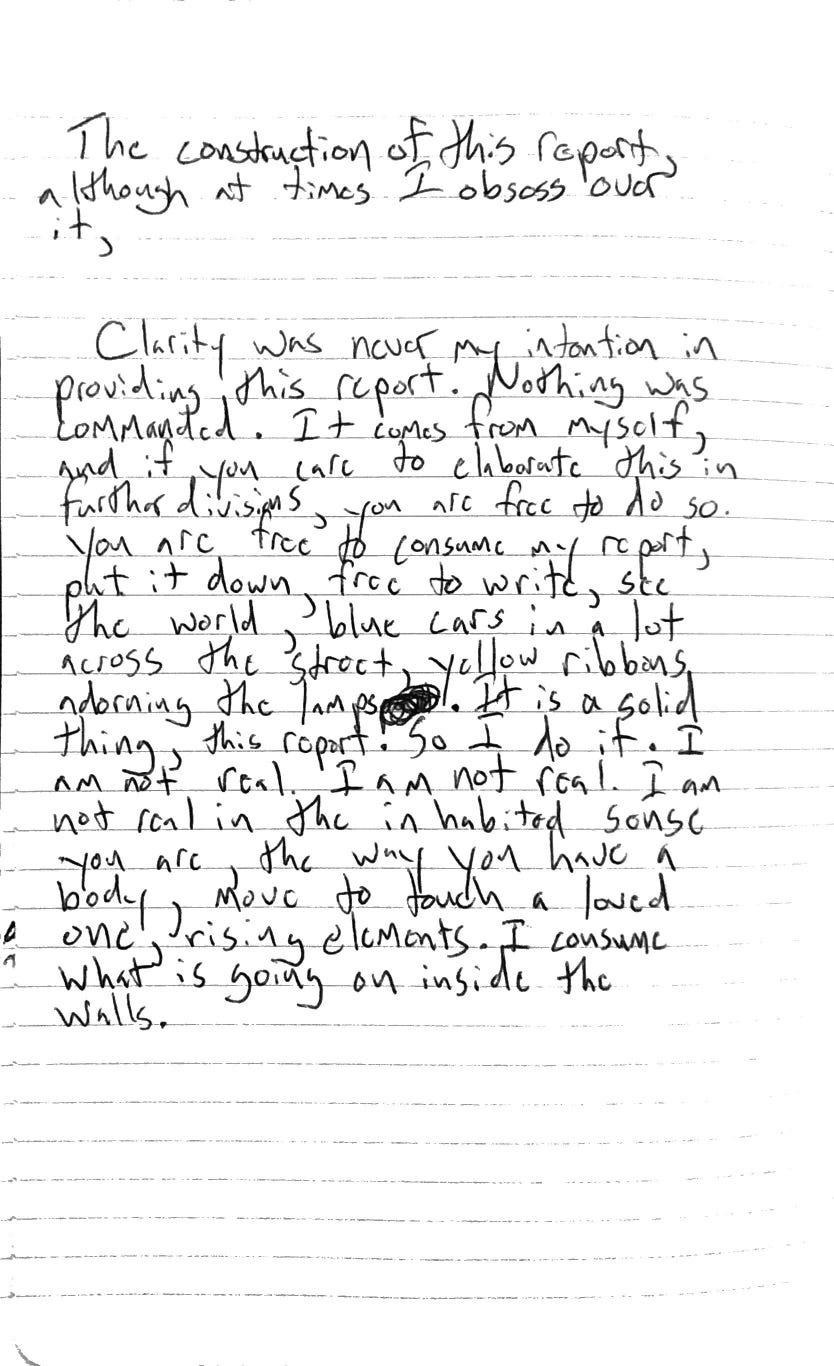 The construction of this report,
although at times I obsess over
it,
Clarity was never my intention in
providing this report. Nothing was
commanded. It comes from myself,
and if you care to elaborate this in
further divisions, you are free to do so.
You are free to consume my report,
put it down, free to write, see
the world, blue cars in a lot
across the street, yellow ribbons
adorning the lamps. It is a solid
thing, this report. So I do it. I
am not real. I am not real. I am
not real in the inhabited sense
you are, the way you have a
body, move to touch a loved
one, rising elements. I consume
what is going on inside the
walls.